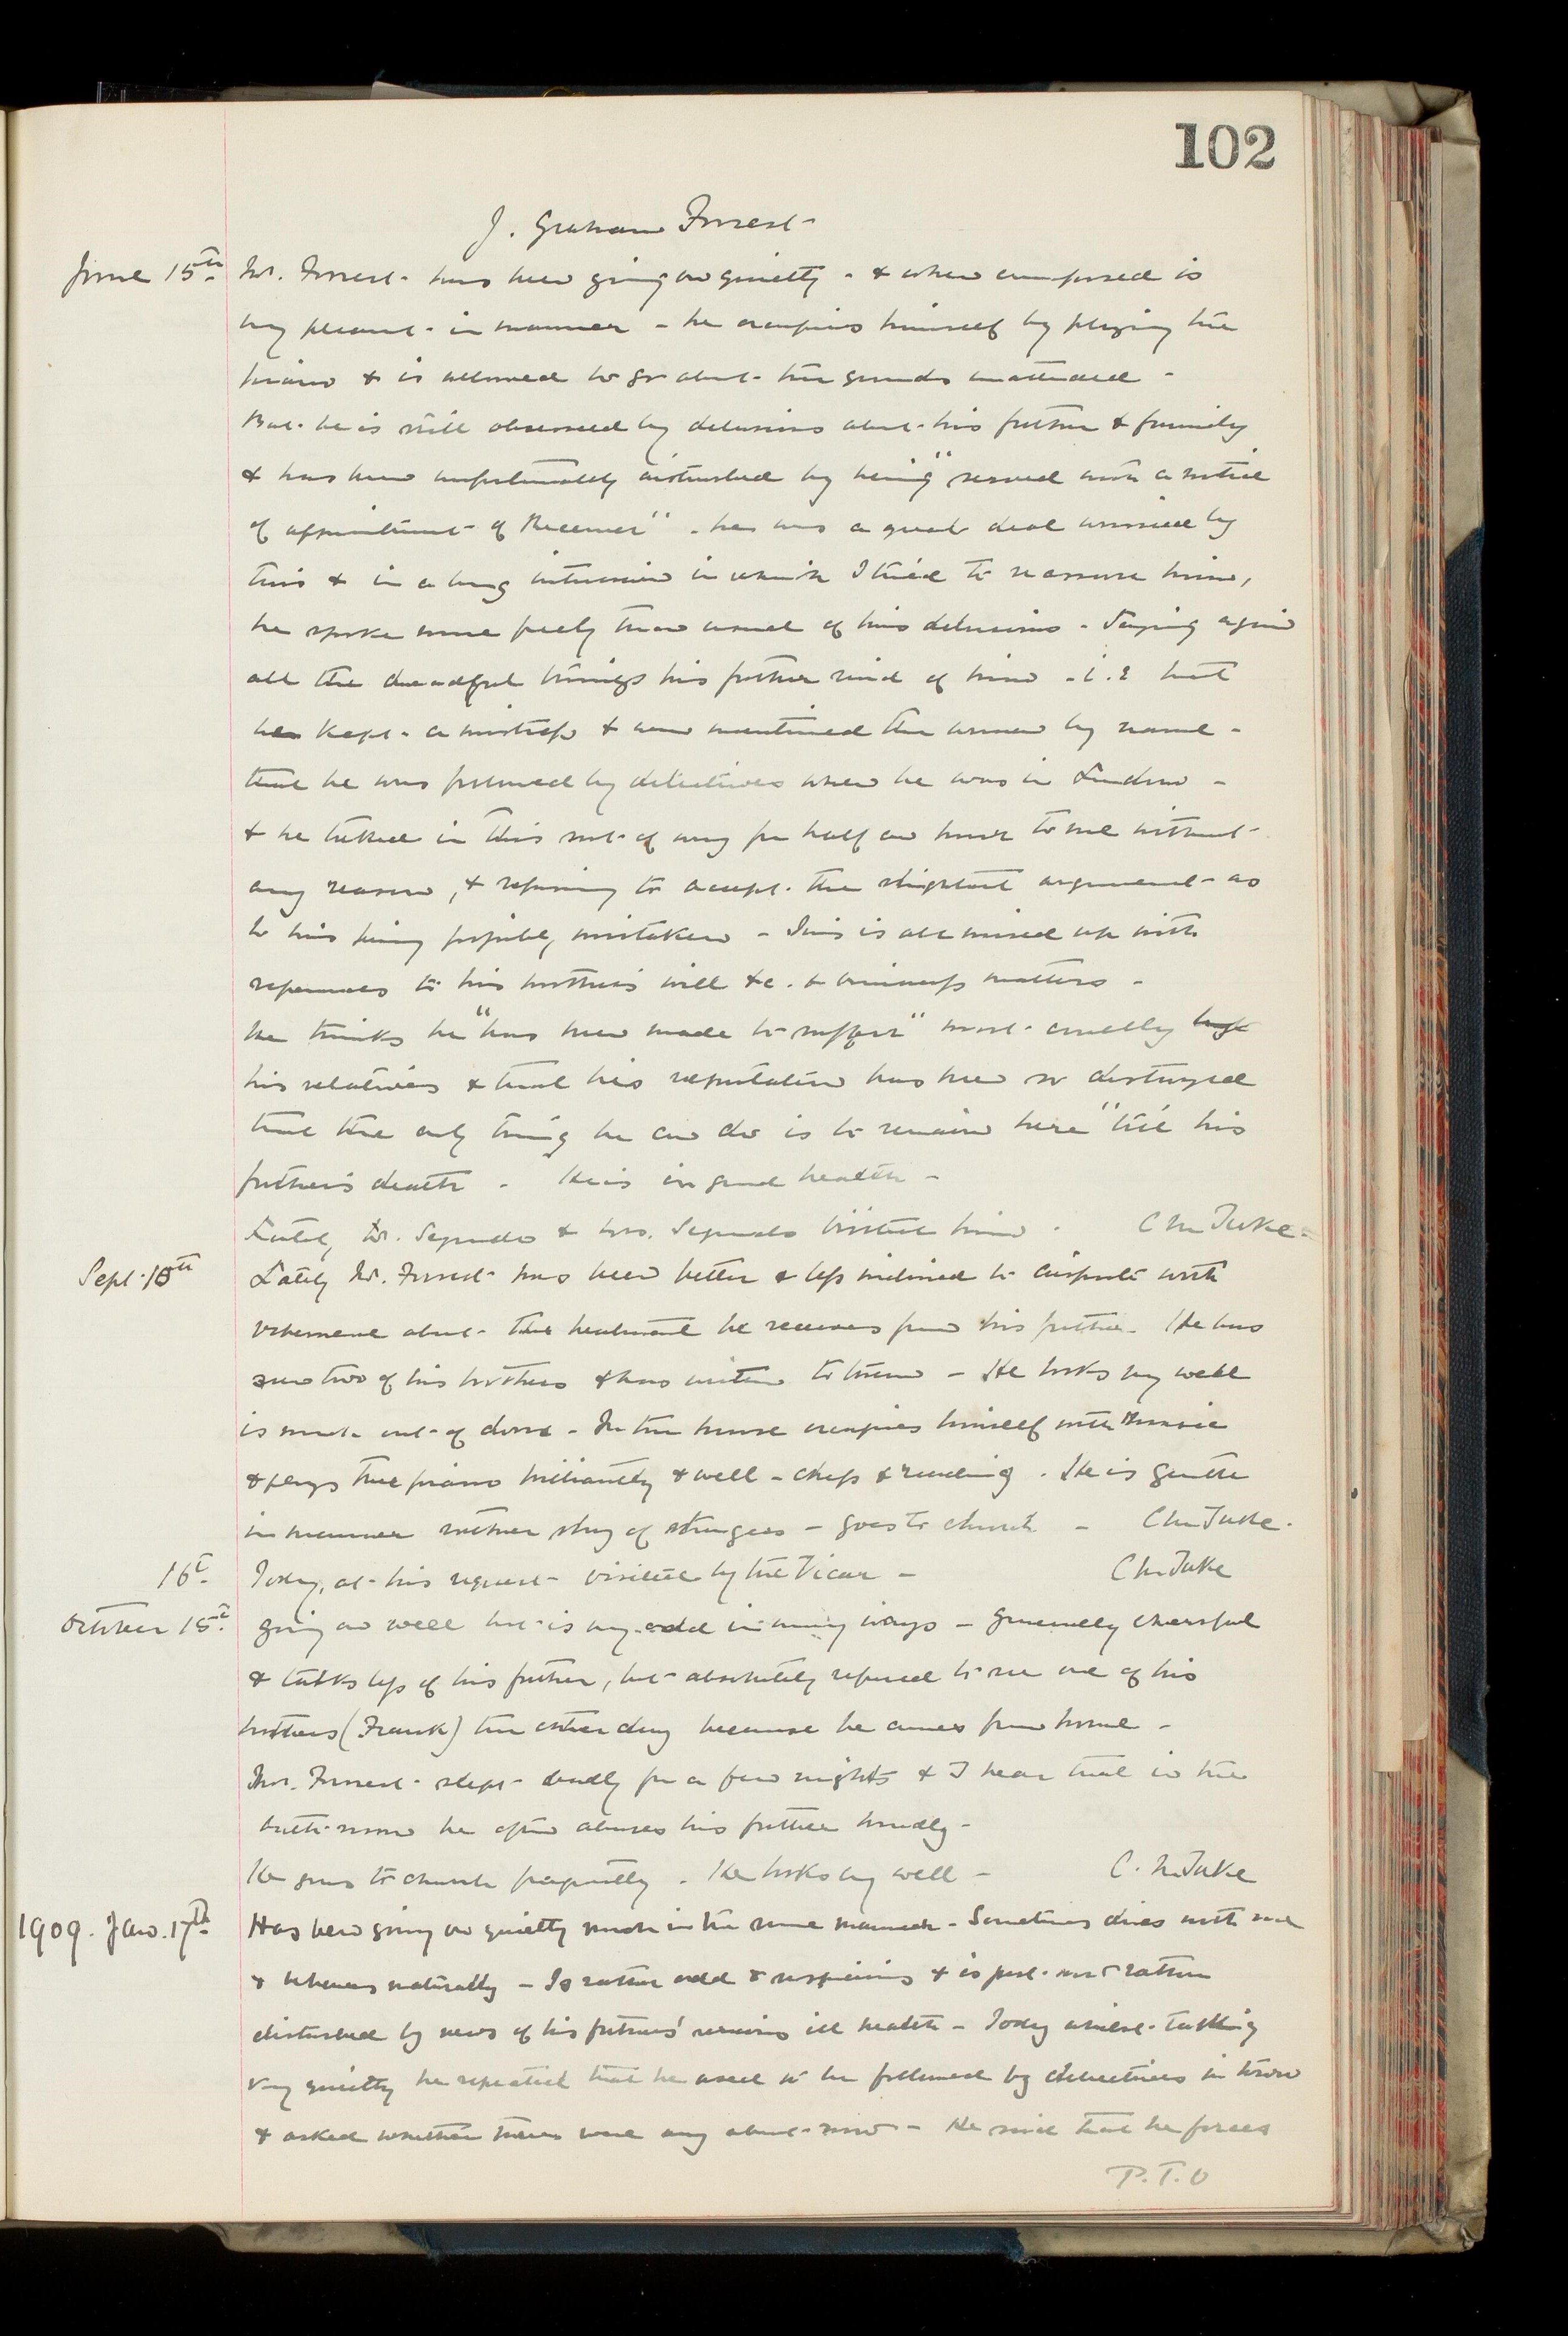 102
J. Graham Forrest
June 15th. Mr. Forrest has been going on quietly - & when composed is
very pleasant in manner - he occupies himself by playing the
piano & is allowed to go about the grounds unattended -
But he is still obsessed by delusions about his father & family
& has been unfortunately disturbed by being "served with a notice
of appointment of Receiver" - he was a great deal worried by
this & in a long interview in which I tried to reassure him,
he spoke more freely than usual of his delusions - saying again
all the dreadful things his father said of him - i.e that
he kept a mistress & even mentioned the woman by name -
that he was followed by detectives when he was in London -
& he talked in this sort of way for half an hour to me without
any reason, & refusing to accept the slightest argument as
to his being possibly mistaken - This is all mixed up with
references to his mother's will &c. & business matters -
He thinks he "has been made to suffer" most cruelly by
his relatives & that his reputation has been so destroyed
that the only thing he can do is to remain here "till his
father's death - He is in good health -
Lately Dr. & Mrs. visited him - C M Tuke -
Sept. 10th Lately Mr. Forrest has been better & less inclined to with
vehemence about the treatment he receives from his father - He has
seen two of his brothers & has written to them - He looks very well
is much out of doors - In the house occupies himself with Music
& plays the piano brilliantly & well - chess & reading - He is gentle
in manner rather shy of strangers - goes to church - C M Tuke -
16th. Today, at his request visited by the Vicar - C M Tuke
October 15th. going on well but is very odd in many ways - Generally cheerful
& talks less of his father, but absolutely refused to see one of his
brothers (Frank) the other day because he comes from home -
Mr. Forrest slept badly for a few nights & I hear that in the
bath-room he often abuses his father loudly -
He goes to church frequently - He looks very well - C. M Tuke
1909. Jan. 17th. Has been going on quietly much in the same manner - Sometimes dines with me
& behaves naturally - Is rather odd & suspicious & is just now rather
disturbed by news of his father's serious ill health - Today whilst talking
very quietly he repeated that he used to be followed by detectives in town
& asked whether there were any about now - He said that he
P.T.O